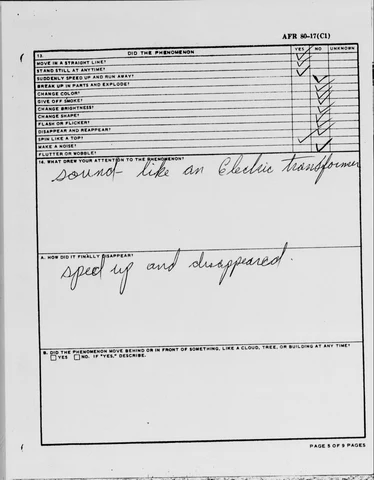 AFR 80-17(C1)
13. DID THE PHENOMENON YES NO UNKNOWN
MOVE IN A STRAIGHT LINE?
STAND STILL AT ANYTIME?
SUDDENLY SPEED UP AND RUN AWAY?
BREAK UP IN PARTS AND EXPLODE?
CHANGE COLOR?
GIVE OFF SMOKE?
CHANGE BRIGHTNESS?
CHANGE SHAPE?
FLASH OR FLICKER?
DISAPPEAR AND REAPPEAR?
SPIN LIKE A TOP?
MAKE A NOISE?
FLUTTER OR WOBBLE?
14. WHAT DREW YOUR ATTENTION TO THE PHENOMENON?
sound - like an Electric transformer
A. HOW DID IT FINALLY DISAPPEAR?
sped up and disappeared.
B. DID THE PHENOMENON MOVE BEHIND OR IN FRONT OF SOMETHING, LIKE A CLOUD, TREE, OR BUILDING AT ANY TIME?
YES NO. IF "YES," DESCRIBE.
PAGE 5 OF 9 PAGES